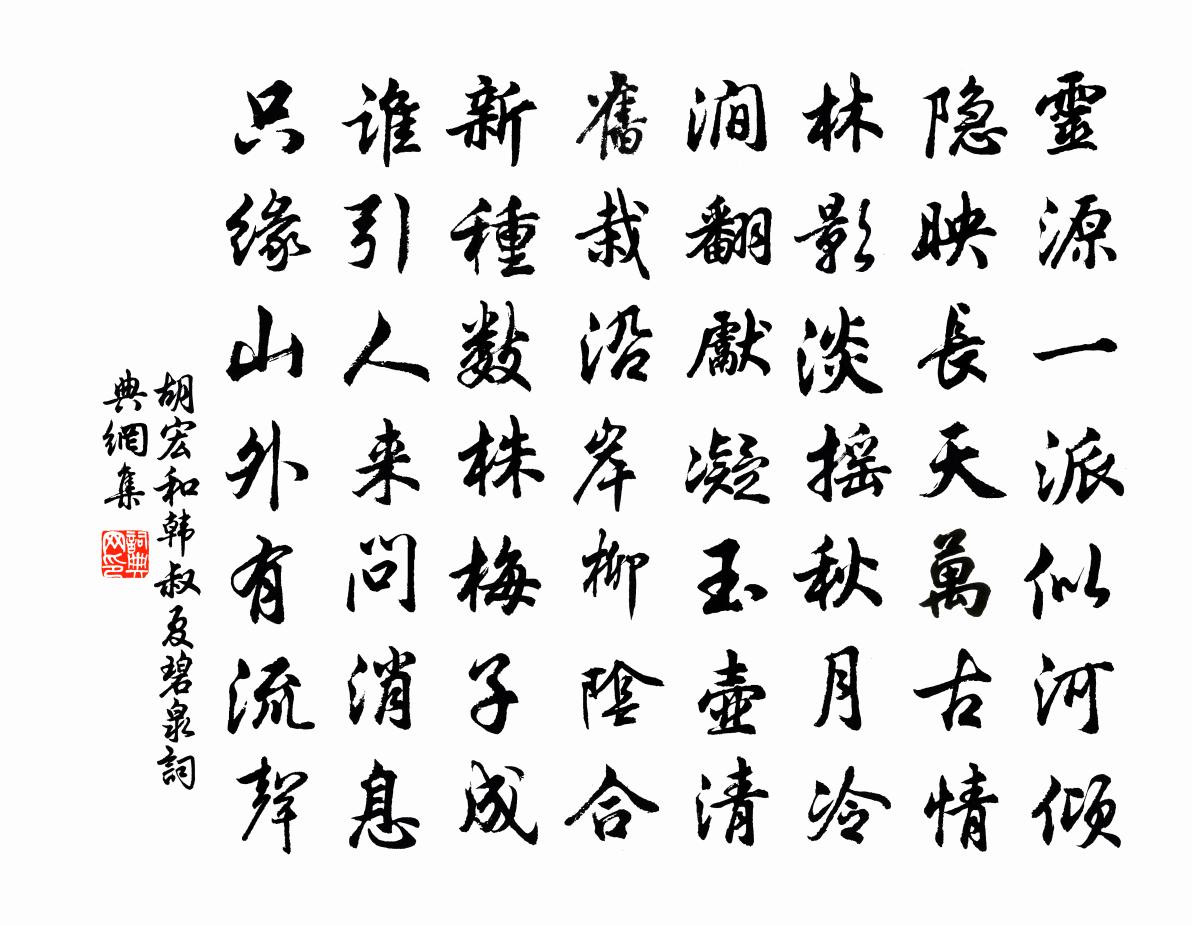 靈源一派似河傾
隐映長天萬古情
林影淡摇秋月冷
澗翻獻凝玉壺清
舊栽沿岸柳陰合
新種數株梅子成
誰引人来問消息
只缘山外有流聲
胡宏和韩叔夏碧泉詞
典網集
詞典
网印